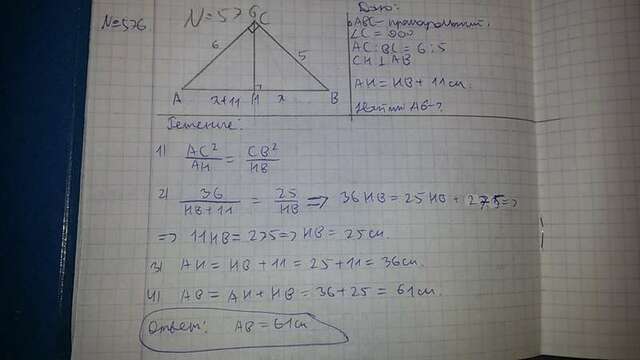 №576 N=576
C
6 5
A x+11 H x B
Дано:
△ABC - прямоугольный.
∠C = 90°
AC : BC = 6 : 5
CH ⊥ AB
AH = HB + 11 см.
Найти AB - ?
Решение:
1) AC²/AH = CB²/HB
2) 36/HB+11 = 25/HB => 36HB = 25HB + 275 =>
=> 11HB = 275 => HB = 25 см.
3) AH = HB + 11 = 25 + 11 = 36 см.
4) AB = AH + HB = 36 + 25 = 61 см.
Ответ: AB = 61 см.